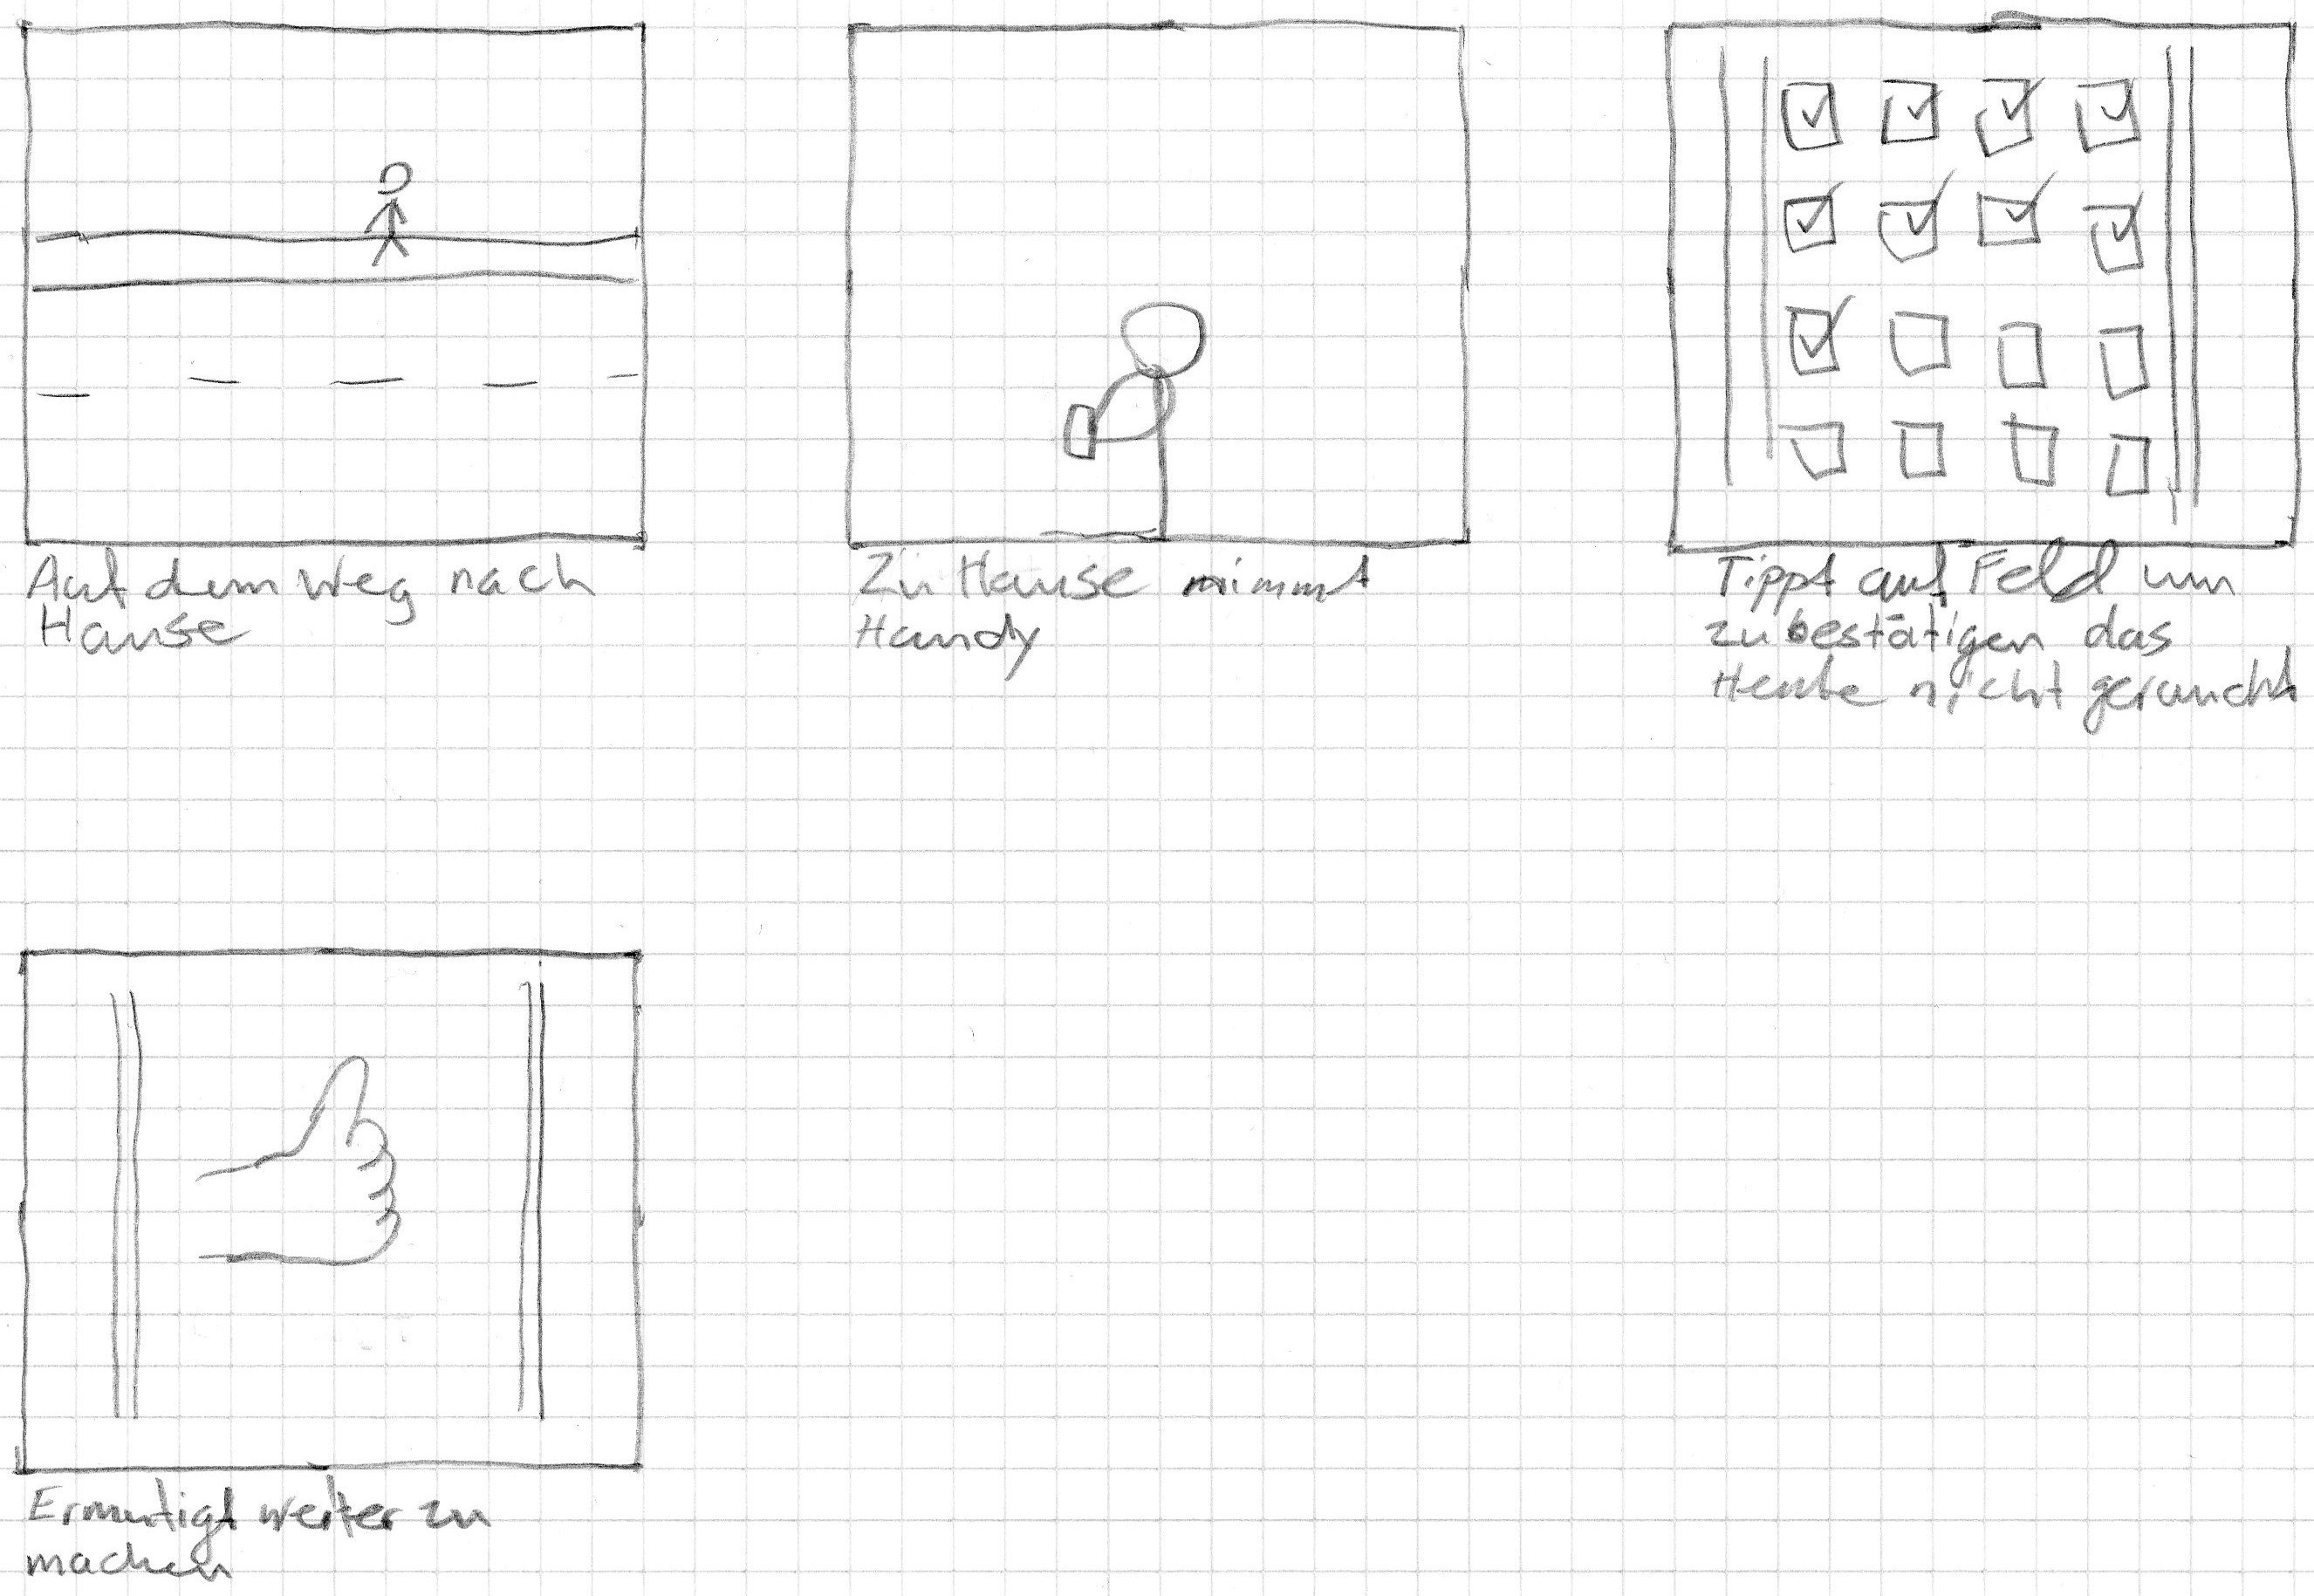 Auf dem Weg nach
Hause
Zu Hause nimmt
Handy
Tippt auf Feld um
zu bestätigen das
Heute nicht geraucht
Ermutigt weiter zu
machen